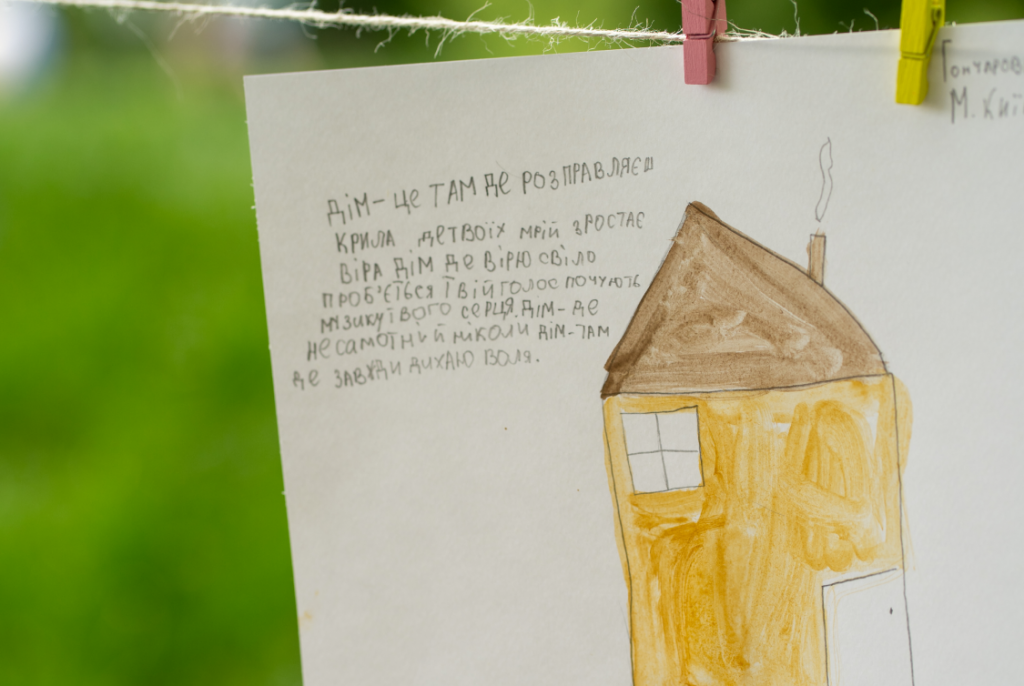 ДІМ- ЦЕ ТАМ ДЕ РОЗПРАВЛЯЄШ
КРИЛА ДЕ ТВОЇХ МРІЙ ЗРОСТАЄ
ВІРА ДІМ ДЕ ВІРЮ СВІЛО
ПРОБ'ЄТЬСЯ ТВІЙ ГОЛОС ПОЧУЮТЬ
МУЗИКУ ТВОГО СЕРЦЯ. ДІМ- ДЕ
НЕ САМОТНІЙ НІКОЛИ ДІМ-ТАМ
ДЕ ЗАВЖДИ ДИХАЮ ВОЛЯ.
ГОНЧАРОВ
М. КИЇ